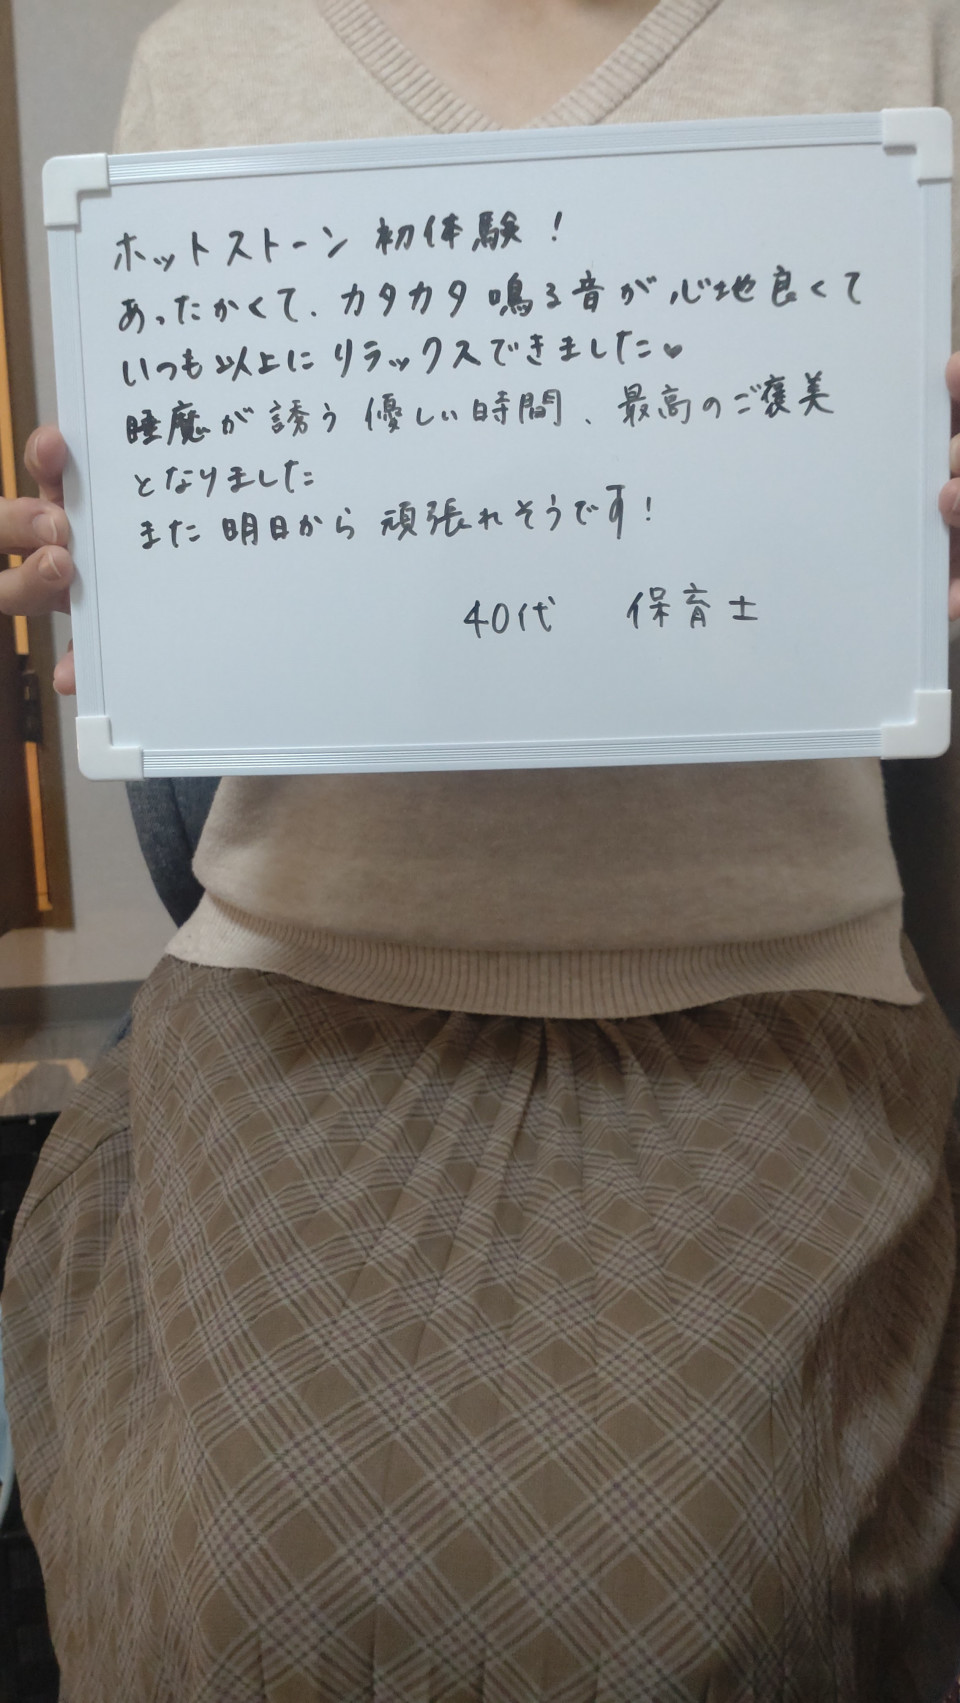 ホットストーン 初体験!
あったかくて、カタカタ鳴る音が心地良くて
いつも以上にリラックスできました♥
睡魔が誘う優しい時間、最高のご褒美
となりました
また明日から頑張れそうです!
40代 保育士